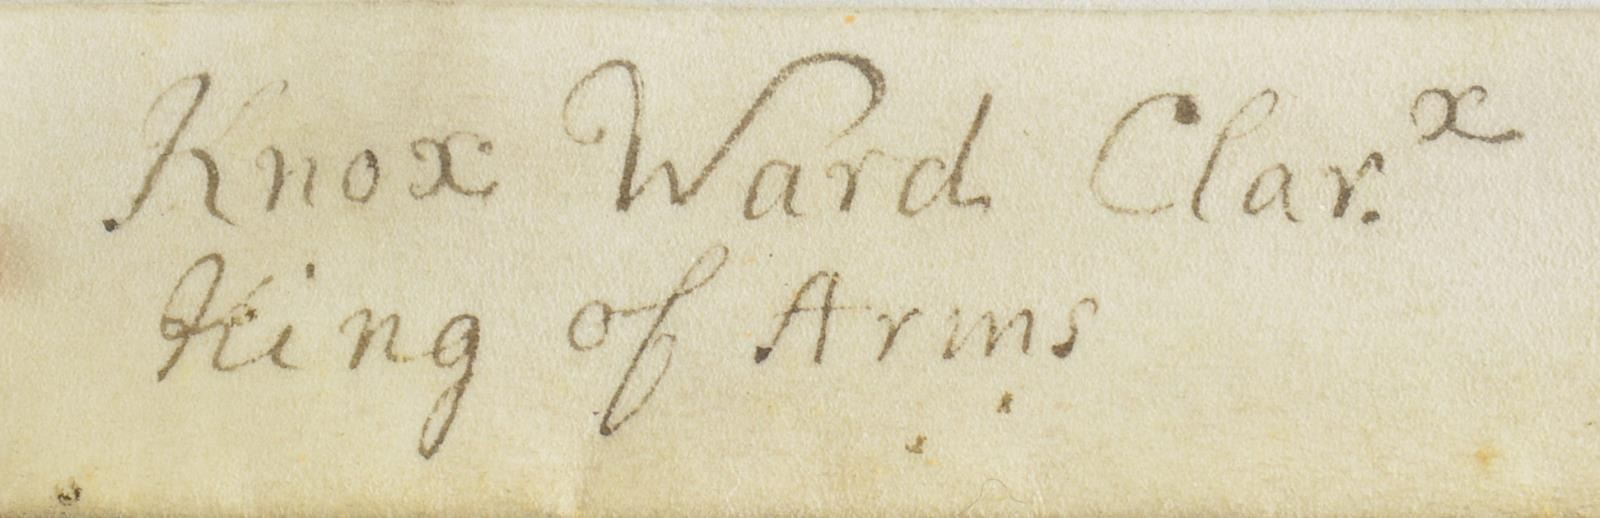 Knox Ward Clar.x
King of Arms